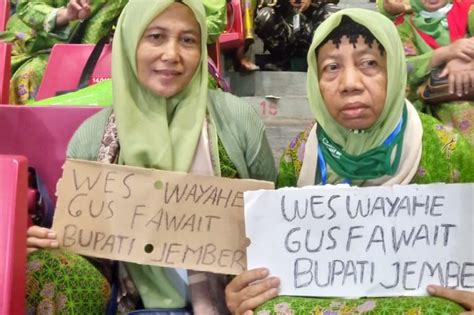 WES WAYAHE
GUS FAWAIT
BUPATI JEMBER
WES WAYAHE
GUS FAWAIT
BUPATI JEMBER